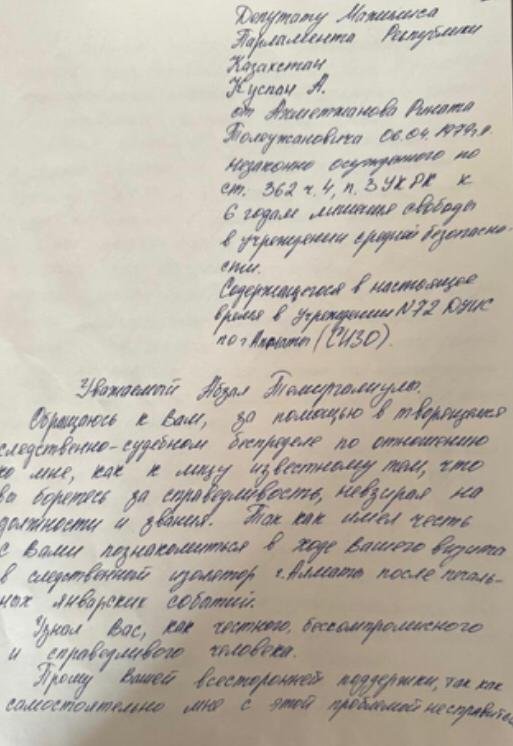 Депутату Мажилиса
Парламента Республики
Казахстан
Куспан А.
от Ахметжанова Рината
Толеужановича 06.04.1979г.р.
незаконно осужденного по
ст. 362 ч.4, п.3 УК РК к
6 годам лишения свободы
в учреждении средней безопасно-
сти.
Содержащегося в настоящее
время в Учреждении N72 ДУИС
по г Алматы (СИЗО).
Уважаемый Абзал
Обращаюсь к Вам, за помощью в творящемся
следственно-судебном беспределе по отношению
ко мне, как к лицу известному тем, что
вы боретесь за справедливость, невзирая на
должности и звания. Так как имел честь
с Вами познакомиться в ходе Вашего визита
в следственный изолятор г. Алматы после печаль-
ных январских событий.
Узнал Вас, как честного, бескомпромисного
и справедливого человека.
Прошу Вашей всесторонней поддержки, так как
самостоятельно мне с этой проблемой несправится